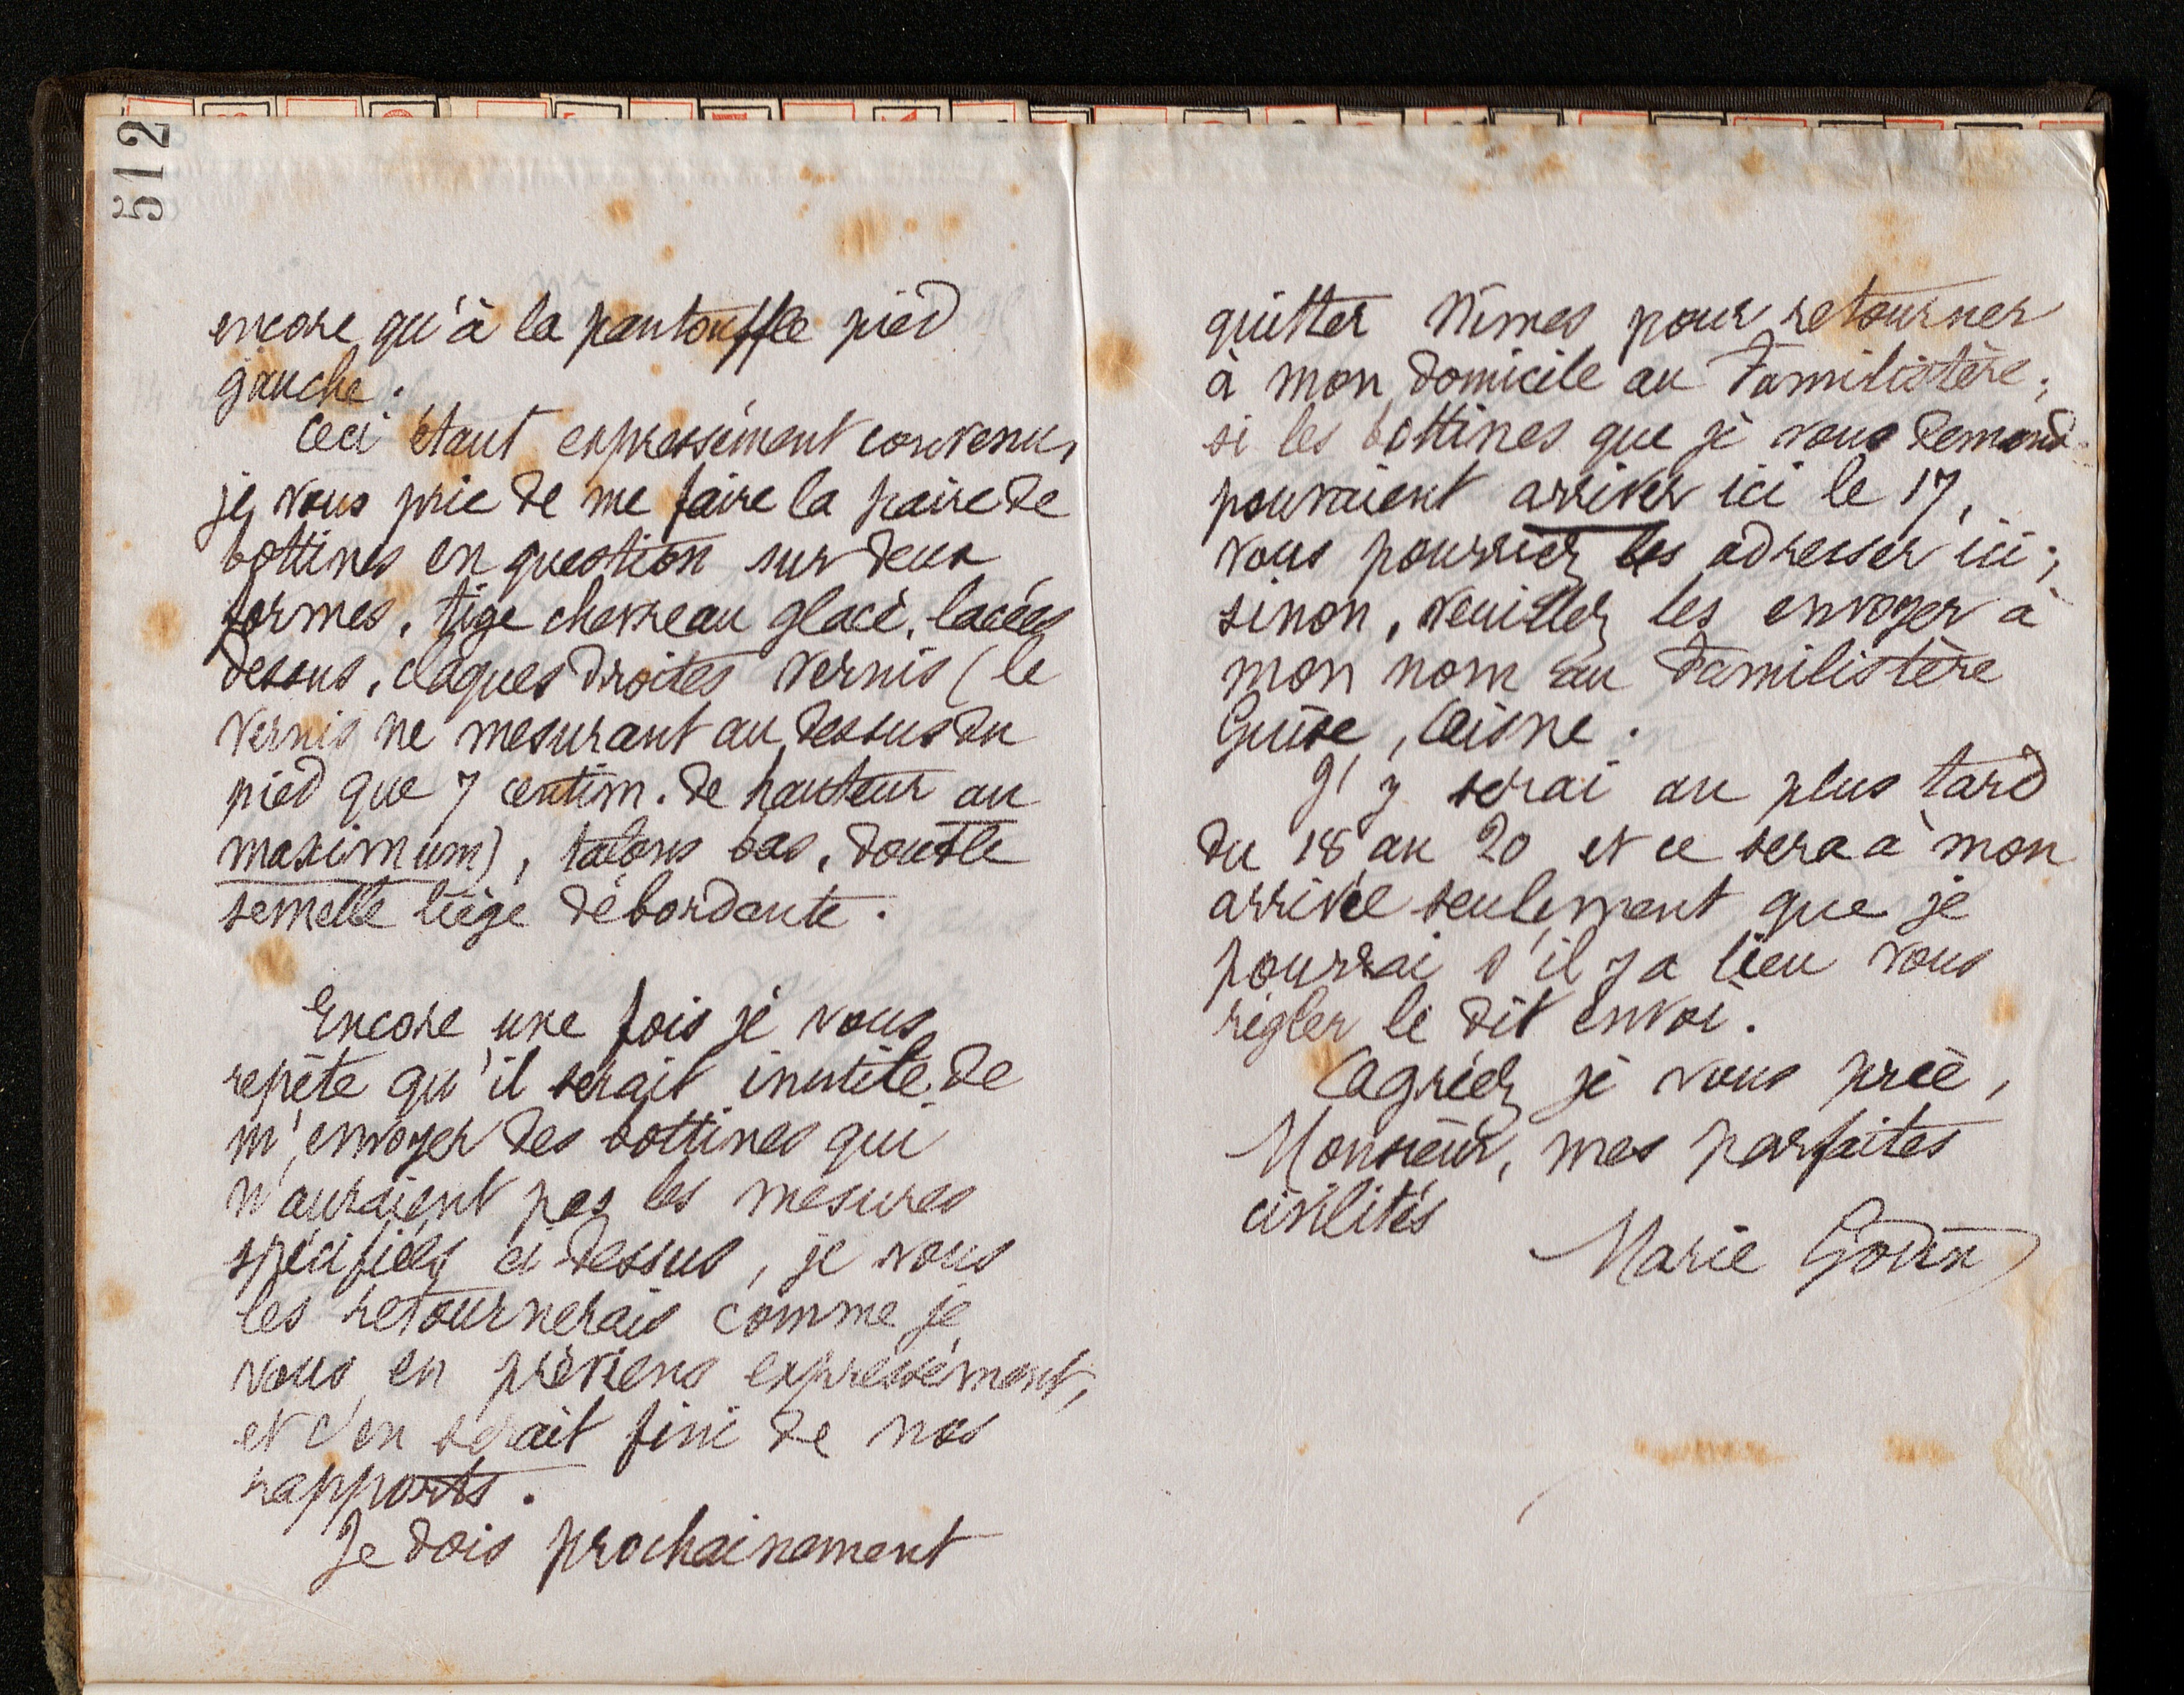 512
encore qu'à la pantouffle pied
gauche.
Ceci étant expressément convenu,
je vous prie de me faire la paire de
bottines en question sur deux
formes, tige chevreau glacé, lacées
dessus, claques droites vernis (le
vernis ne mesurant au dessus du
pied que 7 centim. de hauteur au
maximum), talons bas, double
semelle liège débordante.
Encore une fois je vous
repète qu'il serait inutile de
m'envoyer des bottines qui
n'auraient pas les mesures
spécifiées ci-dessus, je vous
les retournerais comme je
vous en préviens expressément,
et c'en serait fini de nos
rapports.
Je dois prochainement
quitter Nîmes pour retourner
à mon domicile au Familistère;
si les bottines que je vous demand
pouvaient arriver ici le 17,
vous pourriez les adresser ici;
sinon, veuillez les envoyer à
mon nom au Familistère
Guise, Aisne.
J'y serai au plus tard
du 18 au 20 et ce sera à mon
arrivée seulement que je
pourrai s'il y a lieu vous
régler le dit envoi.
Agréez je vous prie,
Monsieur, mes parfaites
civilités
Marie Godin